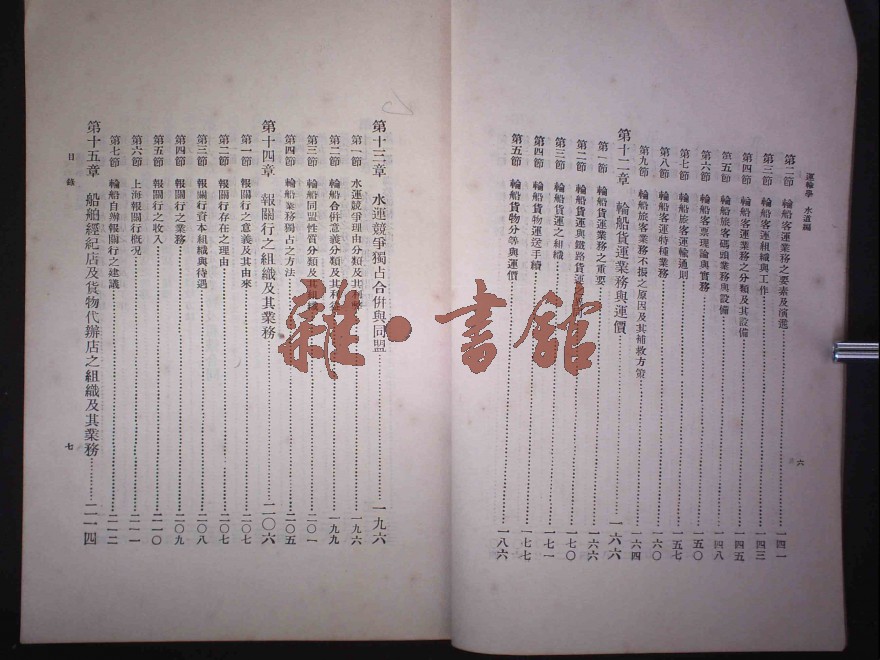 運輸學 水道編
六
第二節 輪船客運業務之要素及演進
一四一
第三節 輪船客運組織與工作
一四三
第四節 輪船客運業務之分類及其設備
一四五
第五節 輪船旅客碼頭業務與設備
一四八
第六節 輪船客票理論與實務
一五〇
第七節 輪船旅客運輸通則
一五七
第八節 輪船客運特種業務
一六〇
第九節 輪船旅客業務不振之原因及其補救方策
一六四
第十二章 輪船貨運業務與運價
一六六
第一節 輪船貨運業務之重要
一六六
第二節 輪船貨運與鐵路貨運
一七〇
第三節 輪船貨運之組織
一七一
第四節 輪船貨物運送手續
一七七
第五節 輪船貨物分等與運價
一八六
第十三章 水運競爭獨占合併與同盟
一九六
第一節 水運競爭理由分類及其利
一九六
第二節 輪船合併意義分類及其利
一九九
第三節 輪船同盟性質分類及其組織
二〇一
第四節 輪船業務獨占之方法
二〇五
第十四章 報關行之組織及其業務
二〇六
第一節 報關行之意義及其由來
二〇七
第二節 報關行存在之理由
二〇七
第三節 報關行資本組織與待遇
二〇八
第四節 報關行之業務
二〇九
第五節 報關行之收入
二一〇
第六節 上海報關行概況
二一一
第七節 輪船自辦報關行之建議
二一二
第十五章 船舶經紀店及貨物代辦店之組織及其業務
二一四
目錄
七
雜·書舘